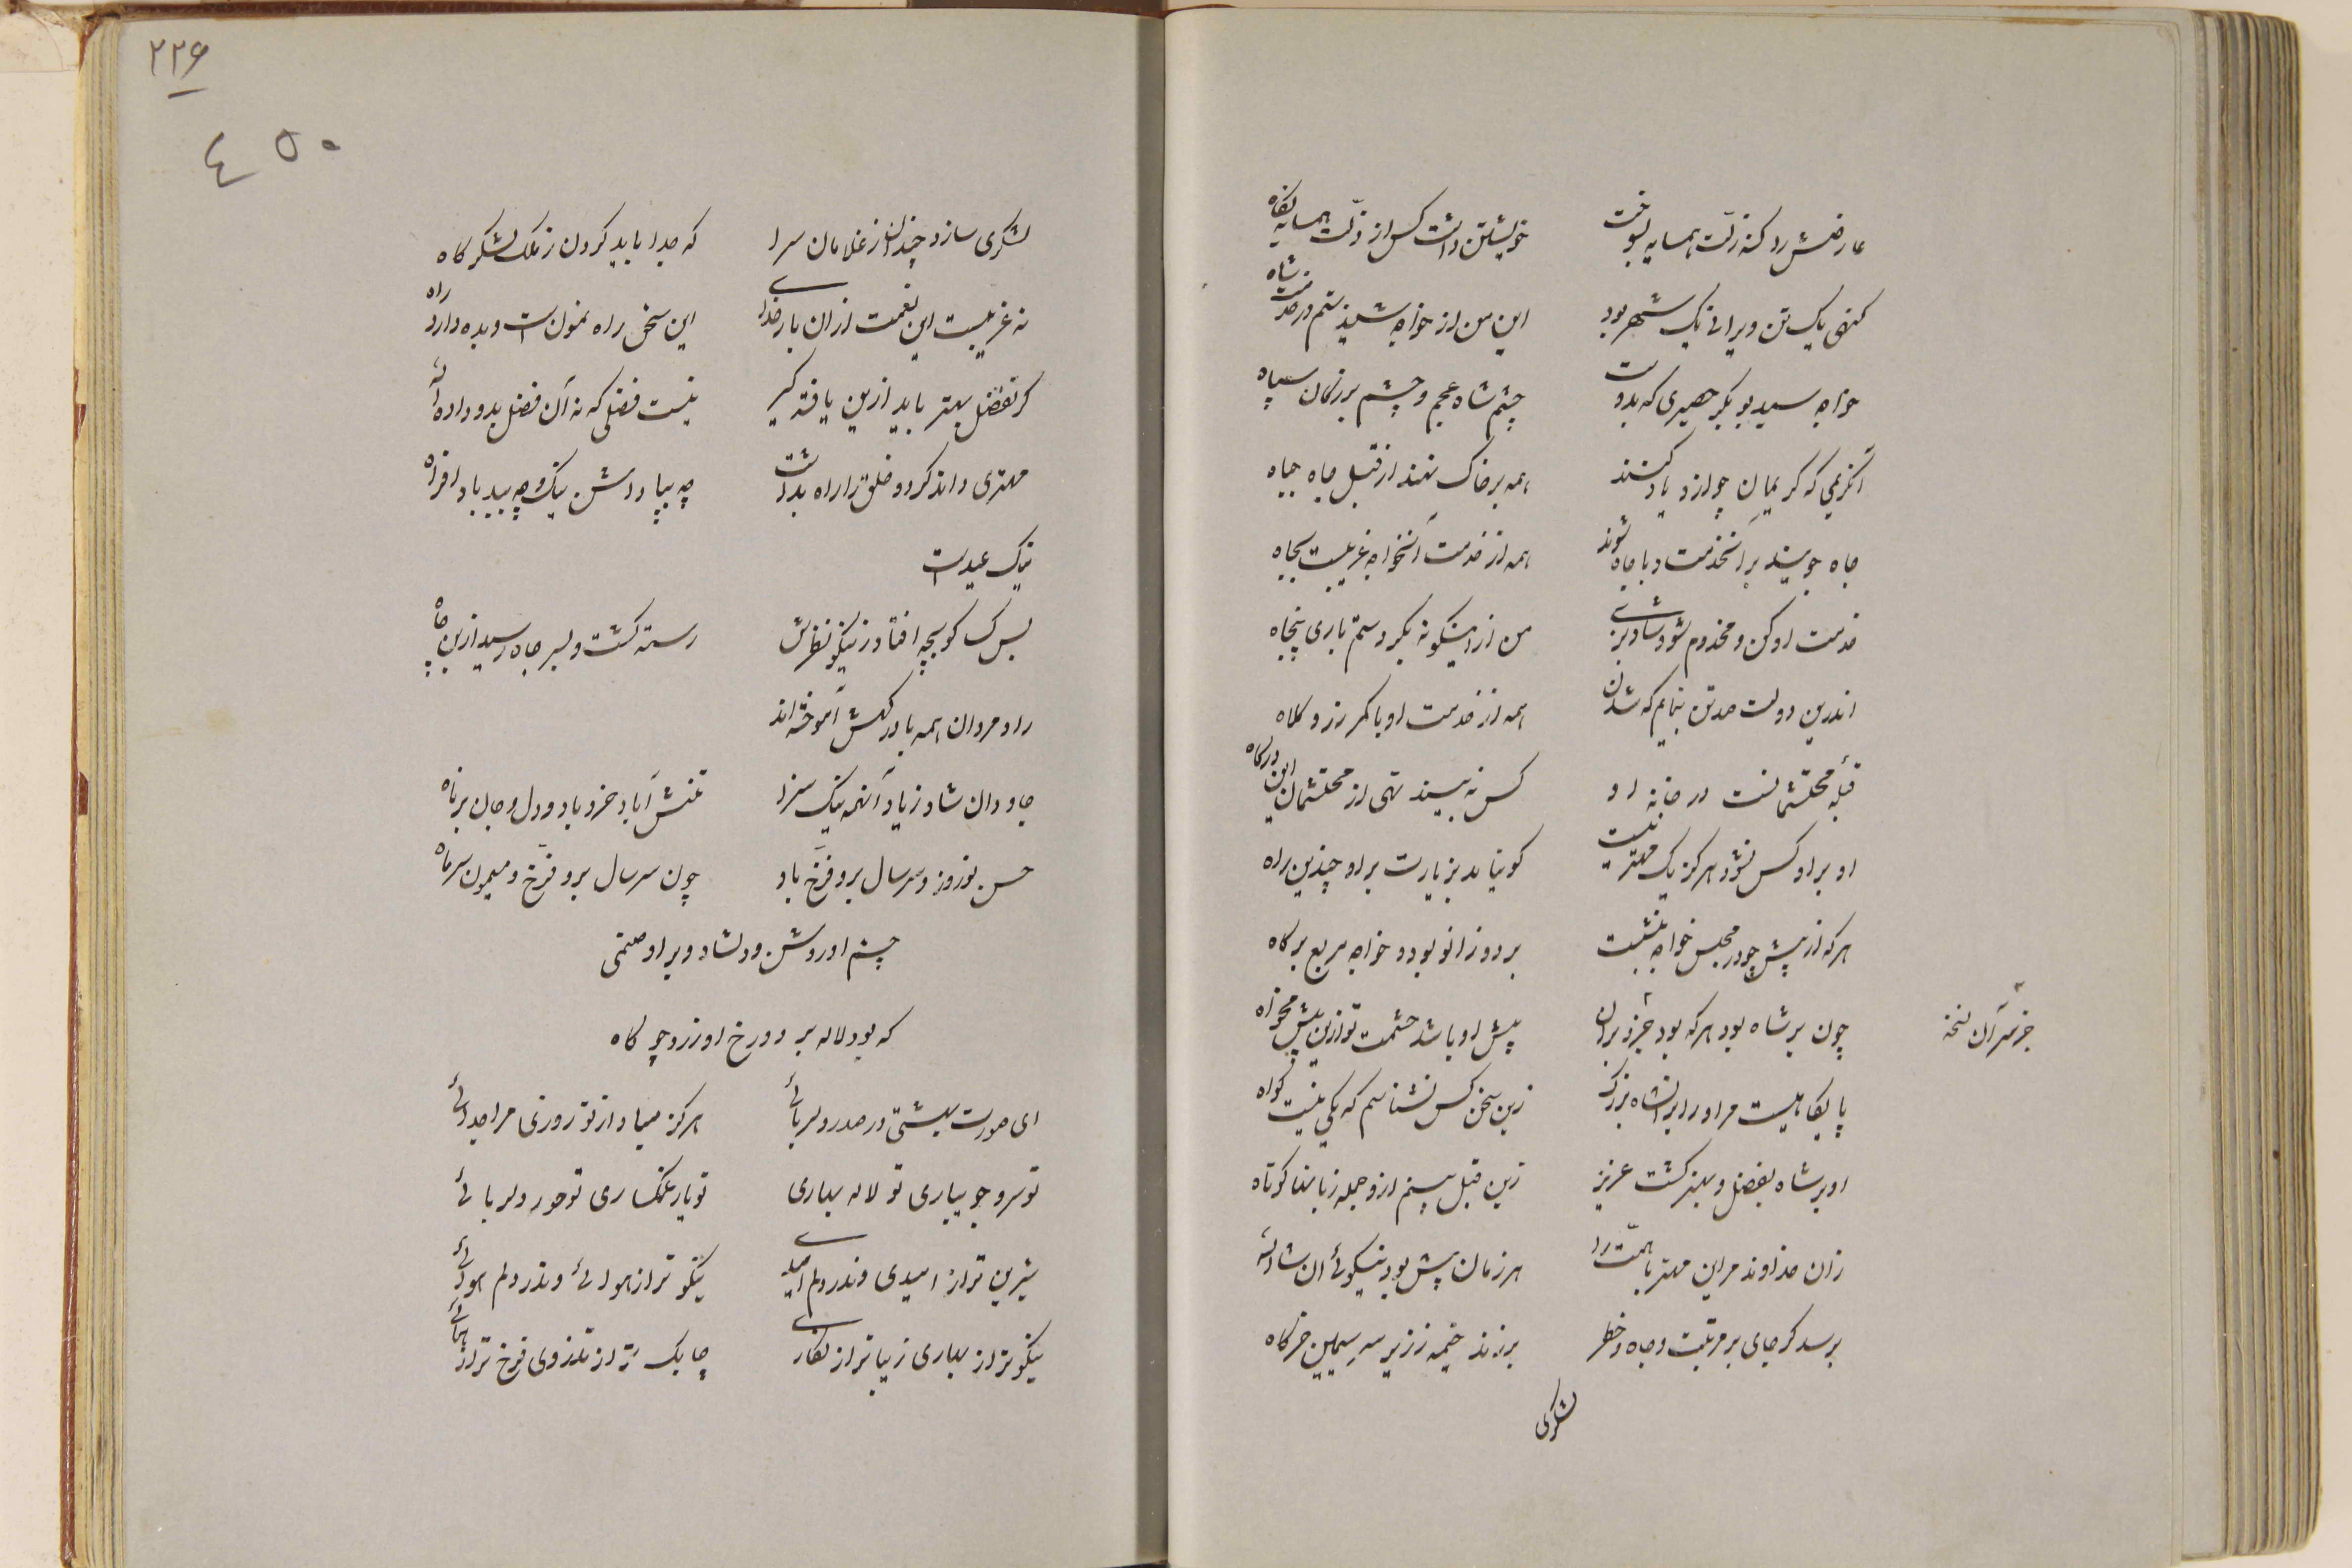 عارضش رد کنه زلت همسایه بسوخت
خویشتن داشت کس از زلت همسایه نگاه
گنهی یک تن ویرانی یک شهر بود
این من از خواجه شنیدستم در خدمت شاه
خواجه سید بوبکر حصیری که بدوست
چشم شاه عجم و چشم بزرگان سپاه
آن کریمی که کریمان چو ازو یاد کنند
همه بر خاک نهند از قبل جاه جباه
جاه جویند بر آنخدمت و با جاه شوند
همه از خدمت آنخواجه غریبست بجاه
خدمت او کن و مخدوم شو و شاد بزی
من ازینگونه بکردستم باری پنجاه
اندرین دولت صد تن بنمایم که شدن
همه از خدمت او با کمر زر و کلاه
قبلهٔ محتشمانست در خانه او
کس نه بیند تهی از محتشمان این درگاه
او براو کس نشود هرگز یک مهتر نیست
کو نیاید بزیارت بر او چندین راه
هر که از پیش چو در مجلس خواجه بنشست
بر دو زانو بود و خواجه مربع برگاه
چون بر شاه بود هر که بود جز پدران
پیش او باشد حشمت تو ازین بیش مخواه
جز سرآن نسخه
پایگاهیست مر او را بر آنشاه بزرگ
زین سخن کس نشناسم که یکی نیست گواه
او بر شاه بفضل و بهنر گشت عزیز
زین قبل بینم ازو جمله زبانها کوتاه
زان خداوند مر این مهتر با همت رد
هر زمان بیش بود نیکوئی ان شاءالله
برسد گر جای بر مرتبت و جاه و خطر
بزند خیمه زرین سر سیمین خرگاه
لشکری
۲۲۶
۴۵۰
لشکری سازد چندان از غلامان سرا
که جدا باید کردون ز ملک لشکرگاه
نه غریبست این نعمت از ان بار خدای
این سخن راه نمونست و بده دارد راه
گر تفضل بهتر باید ازین یافته گیر
نیست فضلی که نه آن فضل بدو داد اله
مهتری داند کرد و خلق را راه بداشت
چه بپاداش نیک و چه ببد باد افراه
نیک عیدست
بس کس کو بچه افتاد ز نیکو نظرش
رسته گشت و بسر جاه رسید از بن چاه
رادمردان همه با درگهش آموخته اند
جاودان شاد زیاد آنهمه نیک سزا
تنش آباد خرد باد و دل و جان برناه
جشن نوروز و سر سال برو فرخ باد
چون سر سال برو فرخ و میمون سر ماه
چشم او روشن و دلشاد و براو صنمی
که بود لاله بر دو رخ او زرد چو کاه
ای صورت بهشتی در صدر دلربائی
هرگز مباد از تو روزی مرا جدائی
تو سرو جویباری تو لاله بهاری
تو یار غمگساری تو حور دلربائی
شیرین تر از امیدی وندر دلم امیدی
نیکو تر از هوائی وندر دلم هوائی
نیکوتر از بهاری زیباتر از نگاری
چابک تر از تذروی فرخ تر از همائی